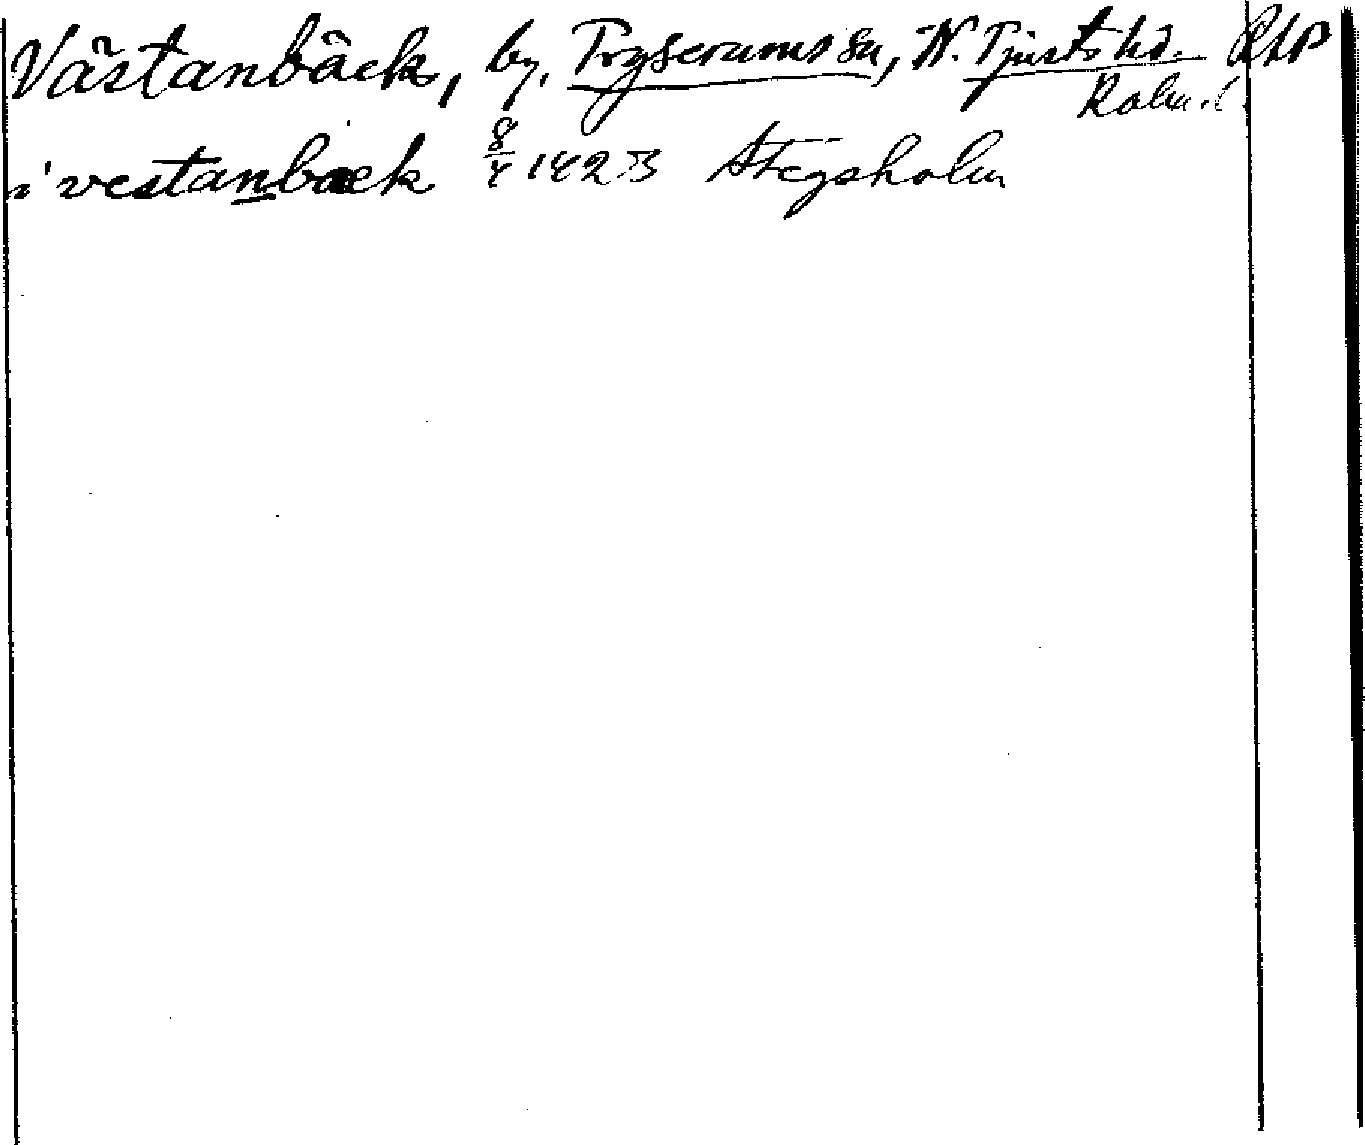 Västanbäck, by, Tryserums sn, N. Tjusts hd. RAP
Kalm. l.
i vestanbæk 8/4 1423 Stegsholm